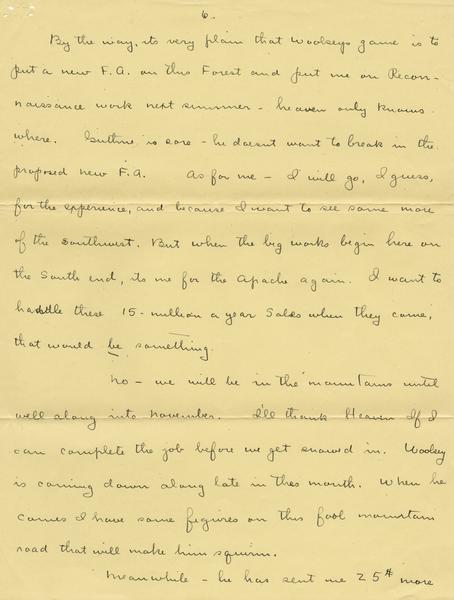 6.
By the way, its very plain that Woolseys game is to
put a new F.A. on this Forest and put me on Recon-
naissance work next summer - heaven only knows
where. Guthrie is sore - he doesnt want to break in the
proposed new F.A. As for me - I will go, I guess,
for the experience, and because I want to see some more
of the Southwest. But when the big works begin here on
the South end, its me for the Apache again. I want to
handle these 15-million a year Sales when they come,
that would be something.
No - we will be in the mountains until
well along into November. I'll thank Heaven if I
can complete the job before we get snowed in. Woolsey
is coming down along late in this month. When he
comes I have some figures on this fool mountain
road that will make him squirm.
Meanwhile - he has sent me 25# more